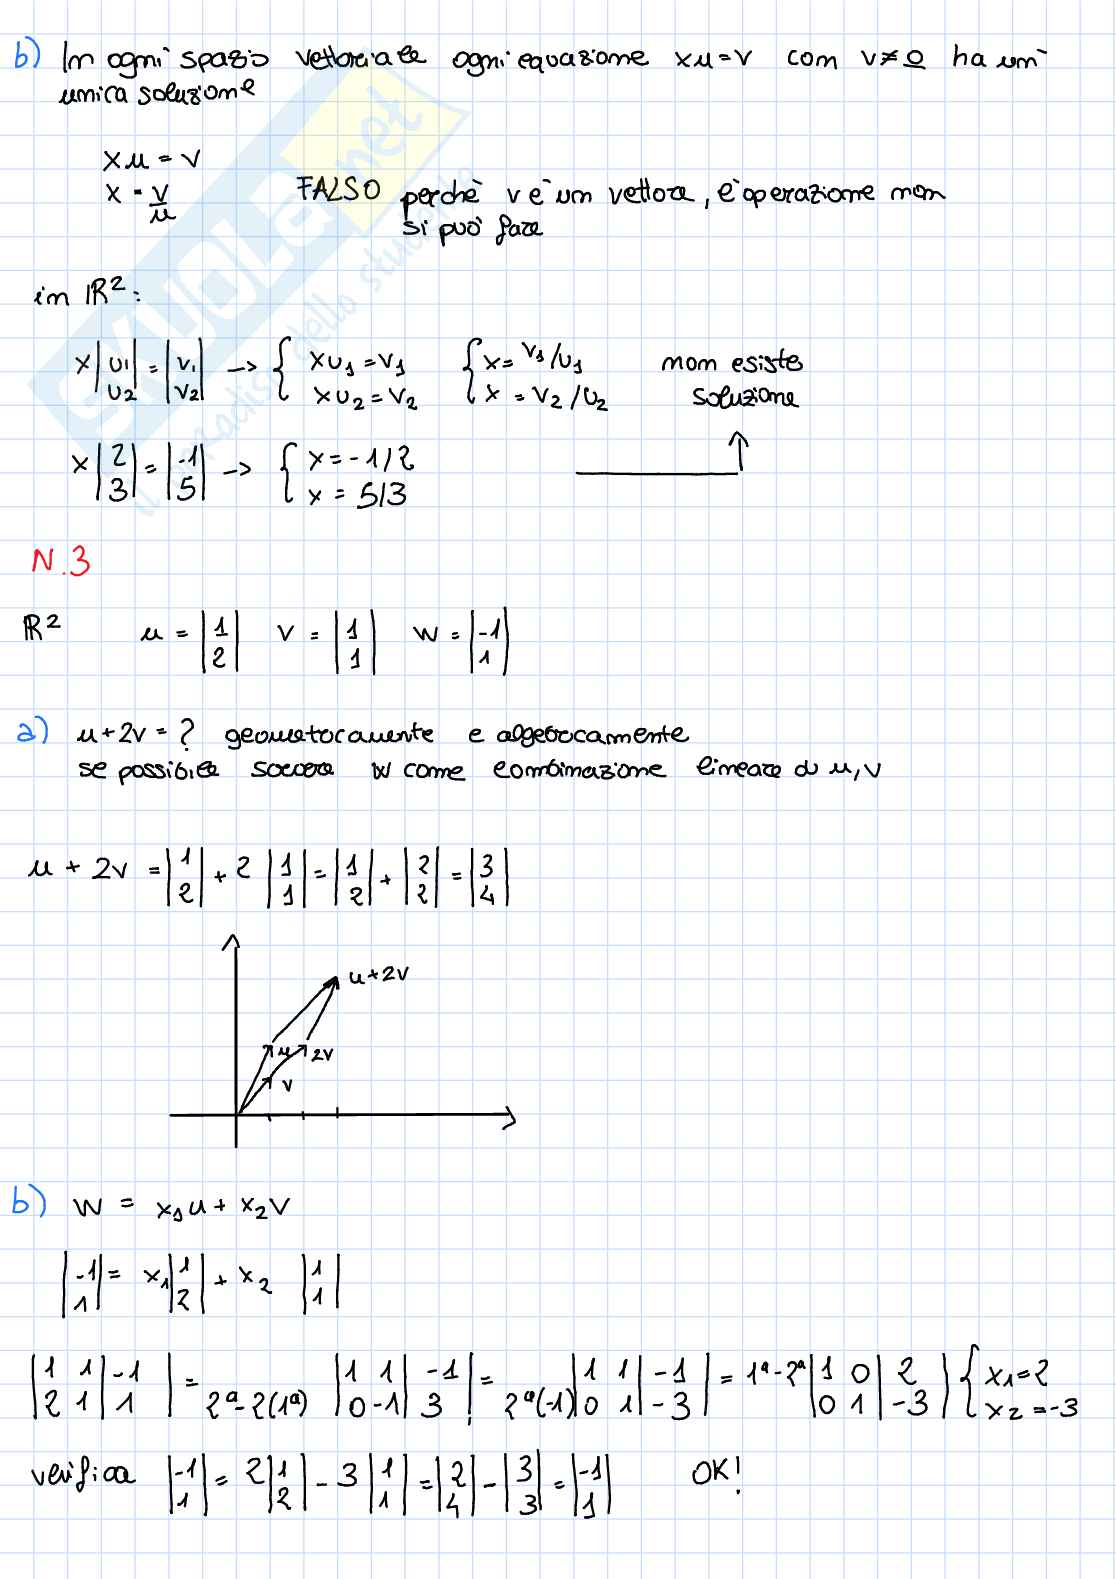 b) In ogni spazio vettoriale ogni equazione xu=v con v≠0 ha un'
unica soluzione
xu = v
x = v/u FALSO perchè v è un vettore, l'operazione non
si può fare
in ℝ²:
x|u1 u2| = |v1 v2| -> { xu1 = v1 xu2 = v2 { x = v1/u1 x = v2/u2 non esiste soluzione
x|2 3| = |-1 5| -> { x = -1/2 x = 5/3
N.3
ℝ² u = |1 2| v = |1 1| w = |-1 1|
a) u+2v = ? geometricamente e algebricamente
se possibile scrivere w come combinazione lineare di u, v
u + 2v = |1 2| + 2 |1 1| = |1 2| + |2 2| = |3 4|
u+2v
u 2v
v
b) w = x1u + x2v
|-1 1| = x1|1 2| + x2 |1 1|
|1 1|-1 2 1|1| = 2ª-2(1ª) |1 1|-1 0 -1|3| = 2ª(-1) |1 1|-1 0 1|-3| = 1ª-2ª |1 0|2 0 1|-3| { x1=2 x2=-3
verifica |-1 1| = 2|1 2| - 3|1 1| = |2 4| - |3 3| = |-1 1| OK!
SKUOLA.net